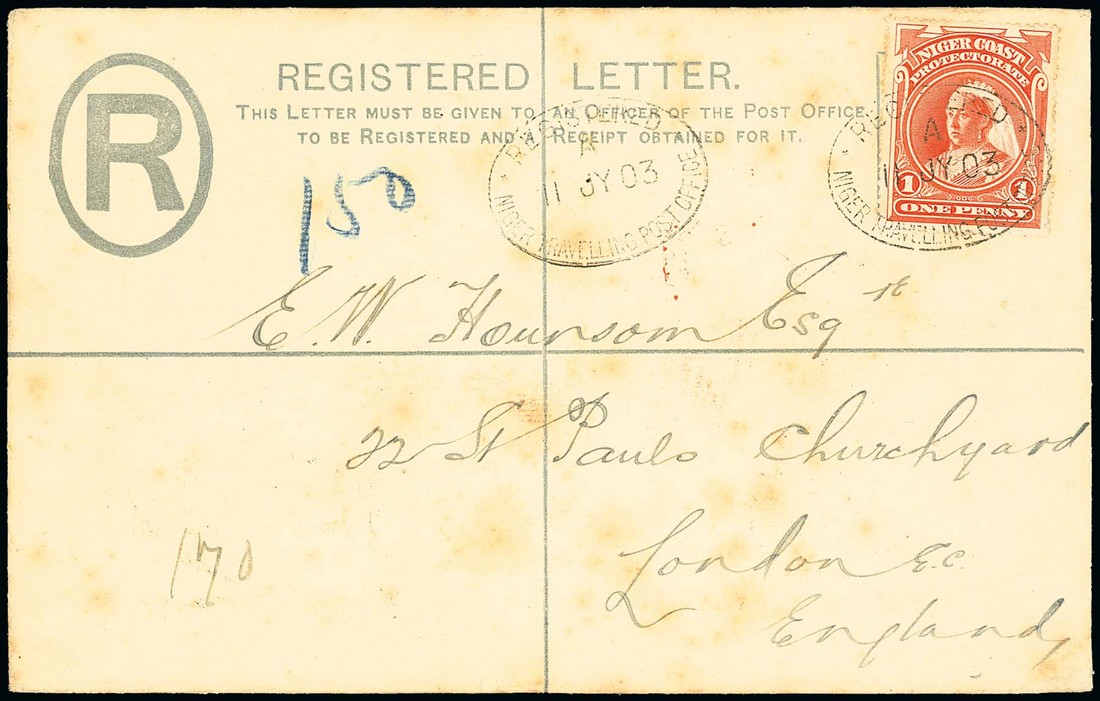 R
REGISTERED LETTER.
THIS LETTER MUST BE GIVEN TO AN OFFICER OF THE POST OFFICE
TO BE REGISTERED AND A RECEIPT OBTAINED FOR IT.
NIGER COAST
PROTECTORATE
1 1
ONE PENNY
REGISTERED
A
11 JY 03
NIGER TRAVELLING POST OFFICE
REGISTERED
A
11 JY 03
NIGER TRAVELLING POST
150
E. W. Hounsom Esqre
22 St Pauls Churchyard
170
London E.C.
England,